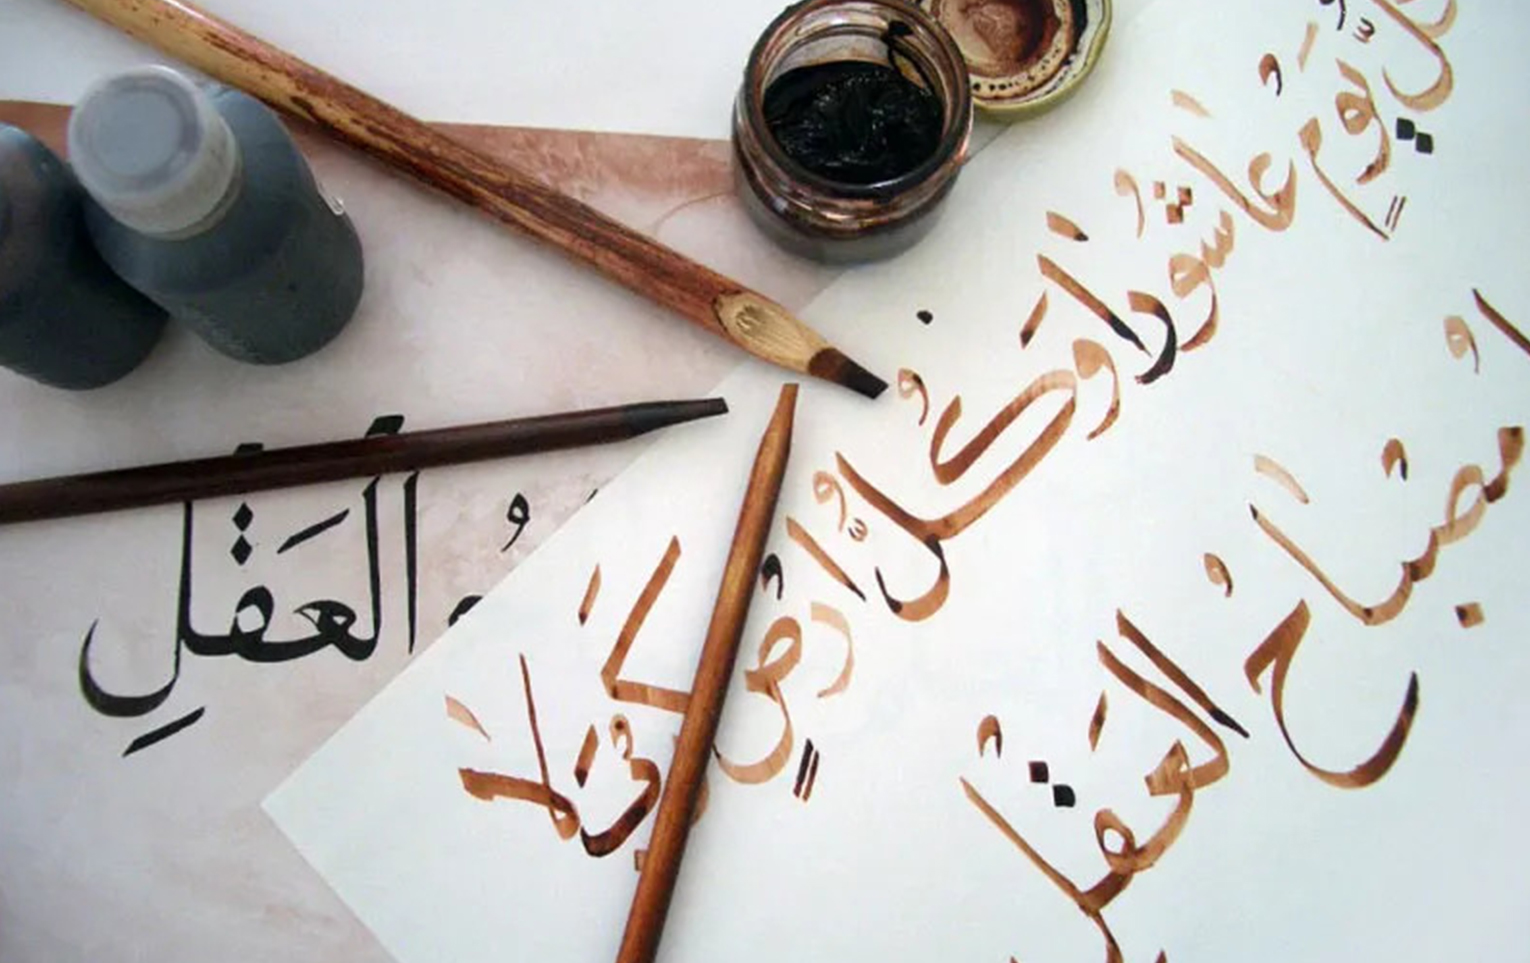 كلُّ يَومٍ عَاشُورَا وَكُلُّ اَرْضٍ كَربَلَا
مُصْبَاحُ العَقْل
العَقلِ